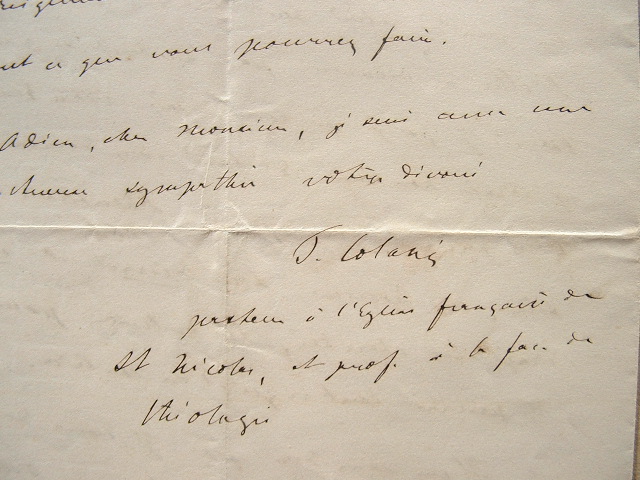 ut ce que vous pourrez faire.
Adieu, cher Monsieur, je suis avec une
sympathie votre dévoué
T. Colani
pasteur à l'Eglise française de
St Nicolas, et prof. à la fac. de
théologie